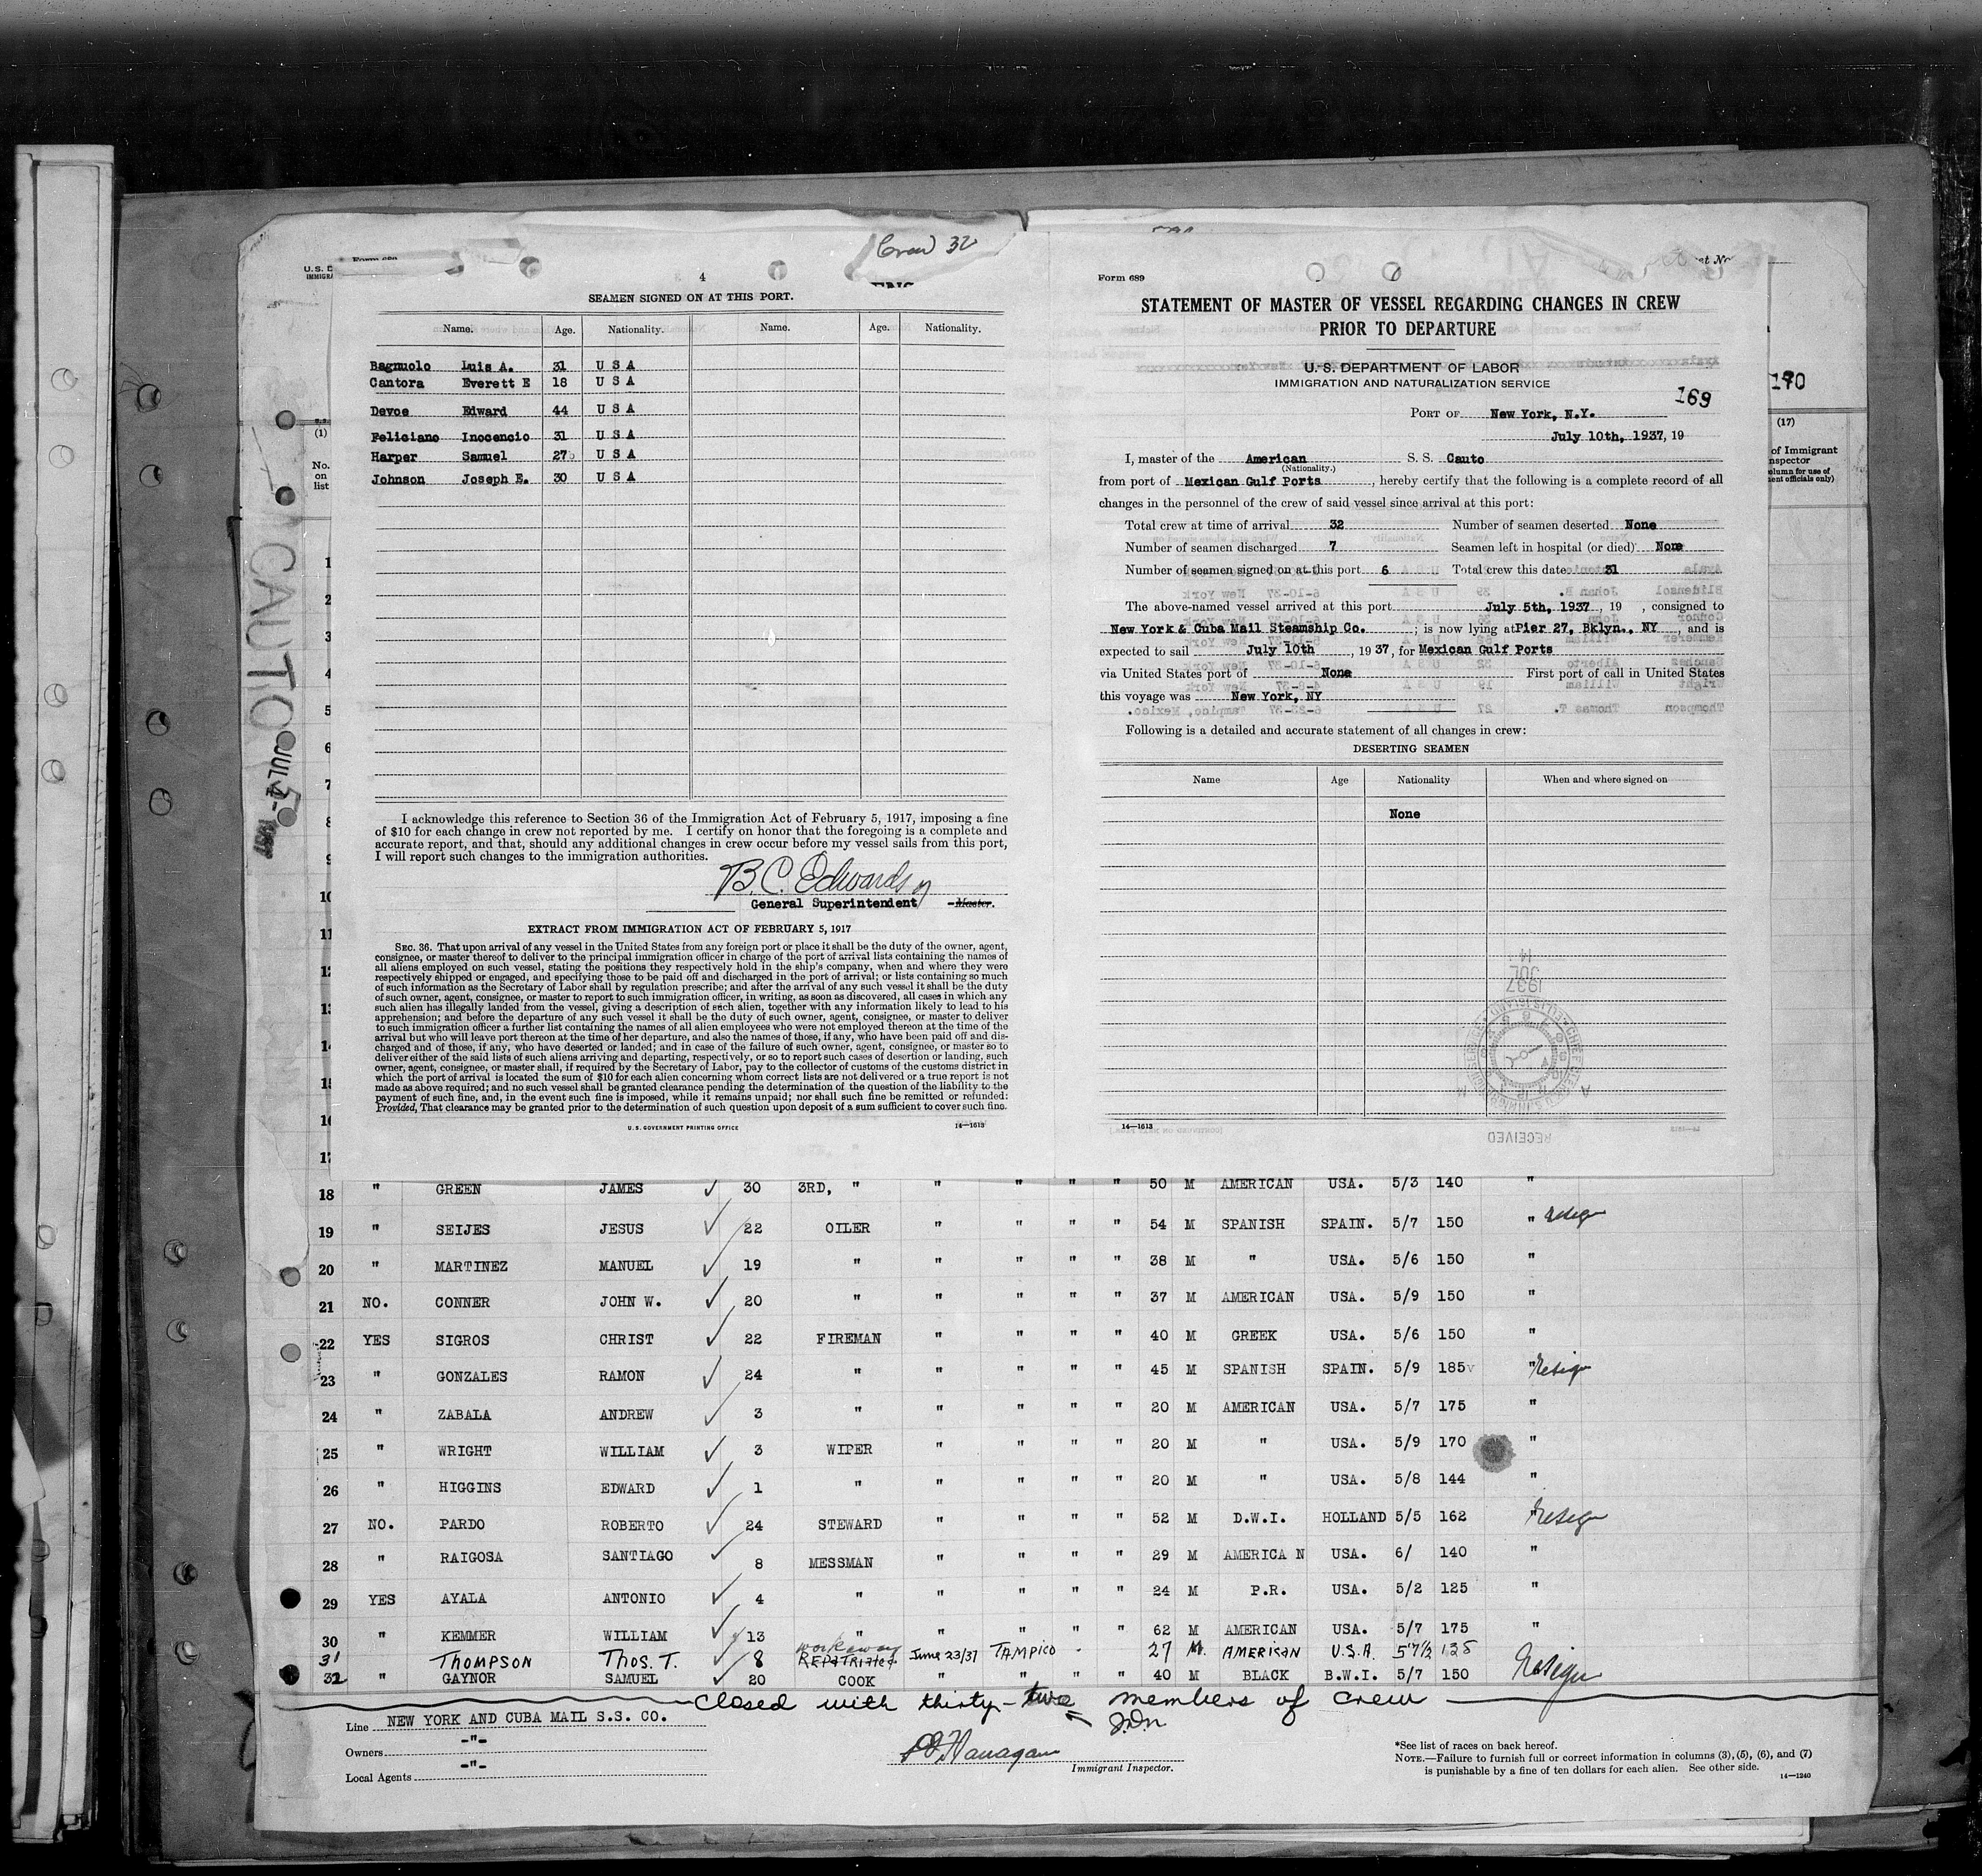 Crew 32
4
SEAMEN SIGNED ON AT THIS PORT.
Name. Age. Nationality. Name. Age. Nationality.
Bagnuolo Luis A. 31 U S A
Cantora Everett E 18 U S A
Devoe Edward 44 U S A
Feliciano Inocencio 31 U S A
Harper Samuel 27 U S A
Johnson Joseph E. 30 U S A
I acknowledge this reference to Section 36 of the Immigration Act of February 5, 1917, imposing a fine
of $10 for each change in crew not reported by me. I certify on honor that the foregoing is a complete and
accurate report, and that, should any additional changes in crew occur before my vessel sails from this port,
I will report such changes to the immigration authorities.
B.C. Edwards
General Superintendent Master.
EXTRACT FROM IMMIGRATION ACT OF FEBRUARY 5, 1917
SEC. 36. That upon arrival of any vessel in the United States from any foreign port or place it shall be the duty of the owner, agent,
consignee, or master thereof to deliver to the principal immigration officer in charge of the port of arrival lists containing the names of
all aliens employed on such vessel, stating the positions they respectively hold in the ship's company, when and where they were
respectively shipped or engaged, and specifying those to be paid off and discharged in the port of arrival; or lists containing so much
of such information as the Secretary of Labor shall by regulation prescribe; and after the arrival of any such vessel it shall be the duty
of such owner, agent, consignee, or master to report to such immigration officer, in writing, as soon as discovered, all cases in which any
such alien has illegally landed from the vessel, giving a description of such alien, together with any information likely to lead to his
apprehension; and before the departure of any such vessel it shall be the duty of such owner, agent, consignee, or master to deliver
to such immigration officer a further list containing the names of all alien employees who were not employed thereon at the time of the
arrival but who will leave port thereon at the time of her departure, and also the names of those, if any, who have been paid off and dis-
charged and of those, if any, who have deserted or landed; and in case of the failure of such owner, agent, consignee, or master so to
deliver either of the said lists of such aliens arriving and departing, respectively, or so to report such cases of desertion or landing, such
owner, agent, consignee, or master shall, if required by the Secretary of Labor, pay to the collector of customs of the customs district in
which the port of arrival is located the sum of $10 for each alien concerning whom correct lists are not delivered or a true report is not
made as above required; and no such vessel shall be granted clearance pending the determination of the question of the liability to the
payment of such fine, and, in the event such fine is imposed, while it remains unpaid; nor shall such fine be remitted or refunded:
Provided, That clearance may be granted prior to the determination of such question upon deposit of a sum sufficient to cover such fine.
U. S. GOVERNMENT PRINTING OFFICE 14—1613
Form 689
STATEMENT OF MASTER OF VESSEL REGARDING CHANGES IN CREW
PRIOR TO DEPARTURE
U. S. DEPARTMENT OF LABOR
IMMIGRATION AND NATURALIZATION SERVICE
169
PORT OF New York, N.Y.
July 10th, 1937, 19
I, master of the American S. S. Cauto
(Nationality.)
from port of Mexican Gulf Ports, hereby certify that the following is a complete record of all
changes in the personnel of the crew of said vessel since arrival at this port:
Total crew at time of arrival 32 Number of seamen deserted None
Number of seamen discharged 7 Seamen left in hospital (or died) None
Number of seamen signed on at this port 6 Total crew this date 31
The above-named vessel arrived at this port July 5th, 1937, 19 , consigned to
New York & Cuba Mail Steamship Co. ; is now lying at Pier 27, Bklyn., NY, and is
expected to sail July 10th, 1937, for Mexican Gulf Ports
via United States port of None First port of call in United States
this voyage was New York, NY
Following is a detailed and accurate statement of all changes in crew:
DESERTING SEAMEN
Name Age Nationality When and where signed on
None
14—1613
RECEIVED
JUL 14 1937
170
(17)
of Immigrant
nspector
olumn for use of
ent officials only)
U. S. D
IMMIGRA
(1)
No.
on
list
CAUTO
JUL -5 1937
1
2
3
4
5
6
7
8
9
10
11
12
13
14
15
16
17
18 " GREEN JAMES ✓ 30 3RD, " " " " " 50 M AMERICAN USA. 5/3 140 "
19 " SEIJES JESUS ✓ 22 OILER " " " " 54 M SPANISH SPAIN. 5/7 150 "
20 " MARTINEZ MANUEL ✓ 19 " " " " " 38 M " USA. 5/6 150 "
21 NO. CONNER JOHN W. ✓ 20 " " " " " 37 M AMERICAN USA. 5/9 150 "
22 YES SIGROS CHRIST ✓ 22 FIREMAN " " " " 40 M GREEK USA. 5/6 150 "
23 " GONZALES RAMON ✓ 24 " " " " " 45 M SPANISH SPAIN. 5/9 185 "
24 " ZABALA ANDREW ✓ 3 " " " " " 20 M AMERICAN USA. 5/7 175 "
25 " WRIGHT WILLIAM ✓ 3 WIPER " " " " 20 M " USA. 5/9 170 "
26 " HIGGINS EDWARD ✓ 1 " " " " " 20 M " USA. 5/8 144 "
27 NO. PARDO ROBERTO ✓ 24 STEWARD " " " " 52 M D.W.I. HOLLAND 5/5 162 "
28 " RAIGOSA SANTIAGO ✓ 8 MESSMAN " " " " 29 M AMERICA N USA. 6/ 140 "
29 YES AYALA ANTONIO ✓ 4 " " " " " 24 M P.R. USA. 5/2 125 "
30 " KEMMER WILLIAM ✓ 13 " " " " " 62 M AMERICAN USA. 5/7 175 "
workaway
31 THOMPSON THOS. T. ✓ 8 REPATRIATED June 23/37 TAMPICO - 27 M. AMERICAN U.S.A. 5'7½ 135
32 " GAYNOR SAMUEL ✓ 20 COOK " " " " 40 M BLACK B.W.I. 5/7 150
closed with thirty-two members of crew
Line NEW YORK AND CUBA MAIL S.S. CO.
Owners -"-
Local Agents -"-
Flanagan
Immigrant Inspector.
*See list of races on back hereof.
NOTE.—Failure to furnish full or correct information in columns (3), (5), (6), and (7)
is punishable by a fine of ten dollars for each alien. See other side.
14—1240